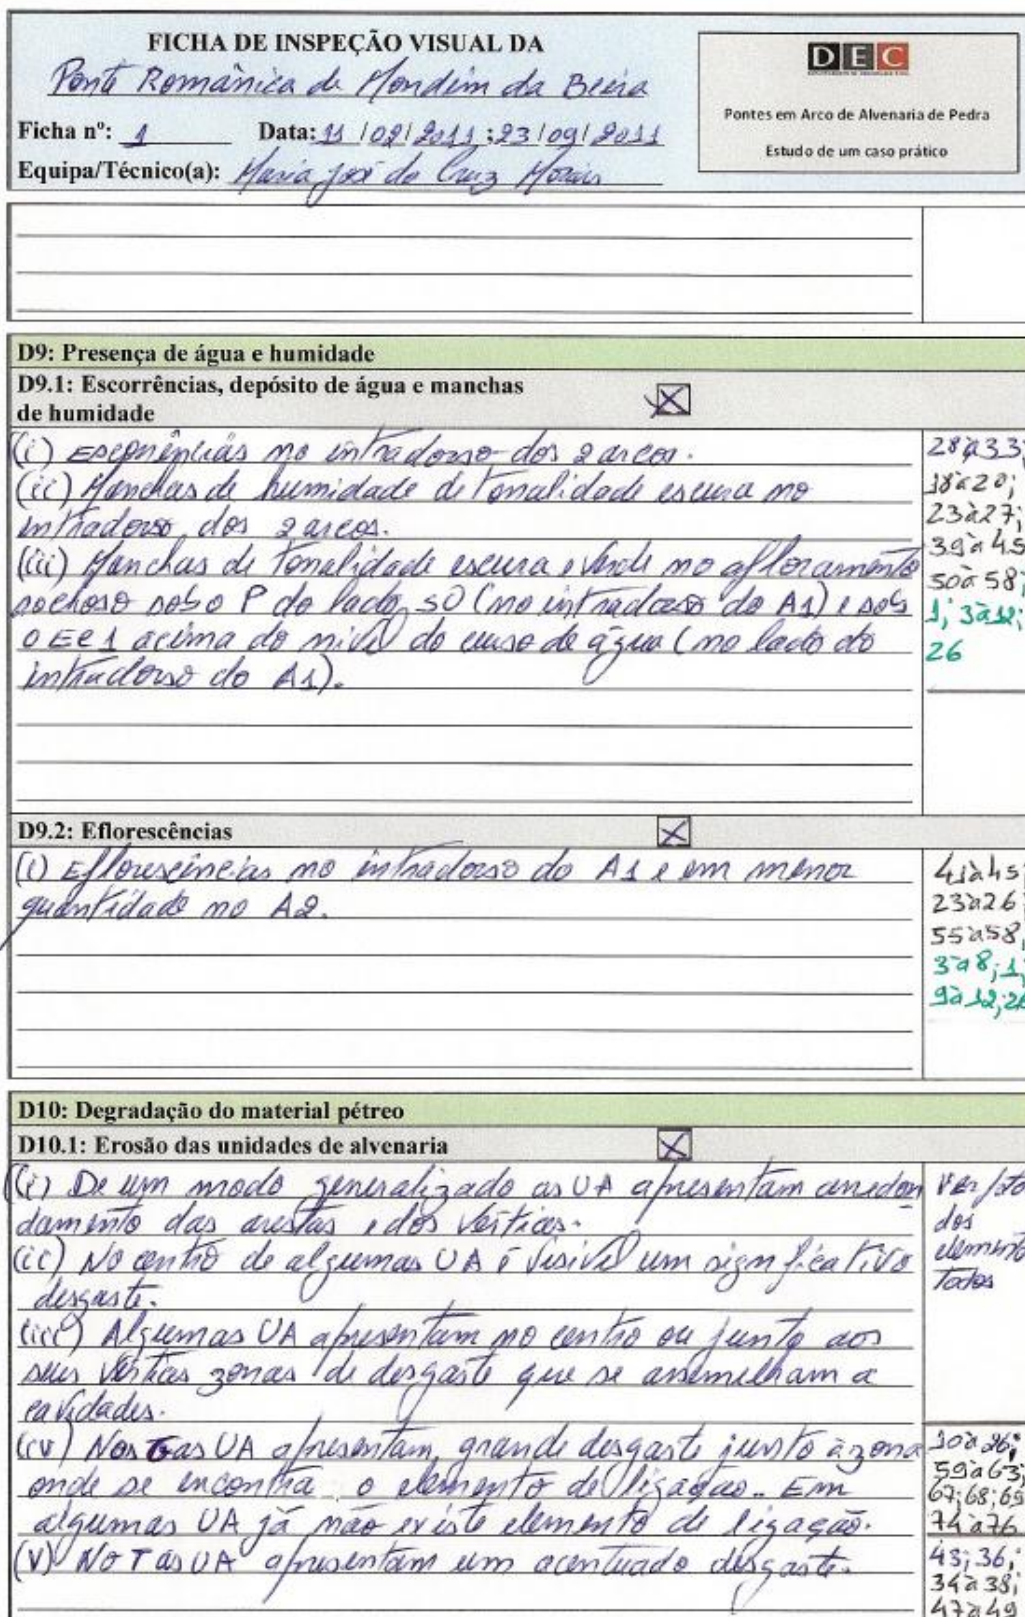 FICHA DE INSPEÇÃO VISUAL DA
Ponte Românica de Mondim da Beira
Ficha nº: 1 Data: 11/02/2011; 23/09/2011
Equipa/Técnico(a): Maria José da Cruz Morais
DEC
Pontes em Arco de Alvenaria de Pedra
Estudo de um caso prático
D9: Presença de água e humidade
D9.1: Escorrências, depósito de água e manchas
de humidade
(i) Escorrências no intradorso dos 2 arcos.
(ii) Manchas de humidade de tonalidade escura no
intradorso dos 2 arcos.
(iii) Manchas de tonalidade escura e verde no afloramento
rochoso sob o P do lado SO (no intradorso do A1) e sob
o EE1 acima do nível do curso de água (no lado do
intradorso do A1).
28 a 33;
18 a 20;
23 a 27;
39 a 45
50 a 58;
1; 3 a 12;
26
D9.2: Eflorescências
(i) Eflorescências no intradorso do A1 e em menor
quantidade no A2.
41 a 45;
23 a 26;
55 a 58,
3 a 8; 1;
9 a 12; 26
D10: Degradação do material pétreo
D10.1: Erosão das unidades de alvenaria
(i) De um modo generalizado as UA apresentam arredon
damento das arestas e dos vértices.
(ii) No centro de algumas UA é visível um significativo
desgaste.
(iii) Algumas UA apresentam no centro ou junto aos
seus vértices zonas de desgaste que se assemelham a
cavidades.
(iv) Nos as UA apresentam, grande desgaste junto à zona
onde se encontra o elemento de ligação. Em
algumas UA já não existe elemento de ligação.
(v) No T as UA apresentam um acentuado desgaste.
Ver foto
dos
elemento
todos
10 a 26;
59 a 63;
67; 68; 69
74 a 76
43; 36;
34 a 38;
47 a 49